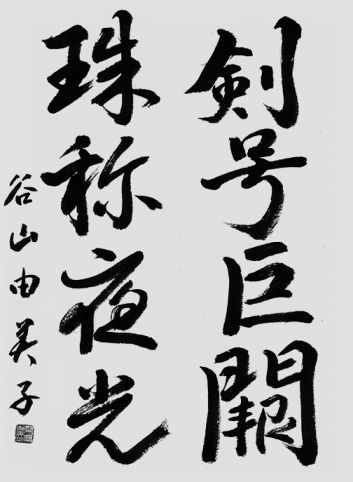 剣号巨闕
珠称夜光
谷山由美子